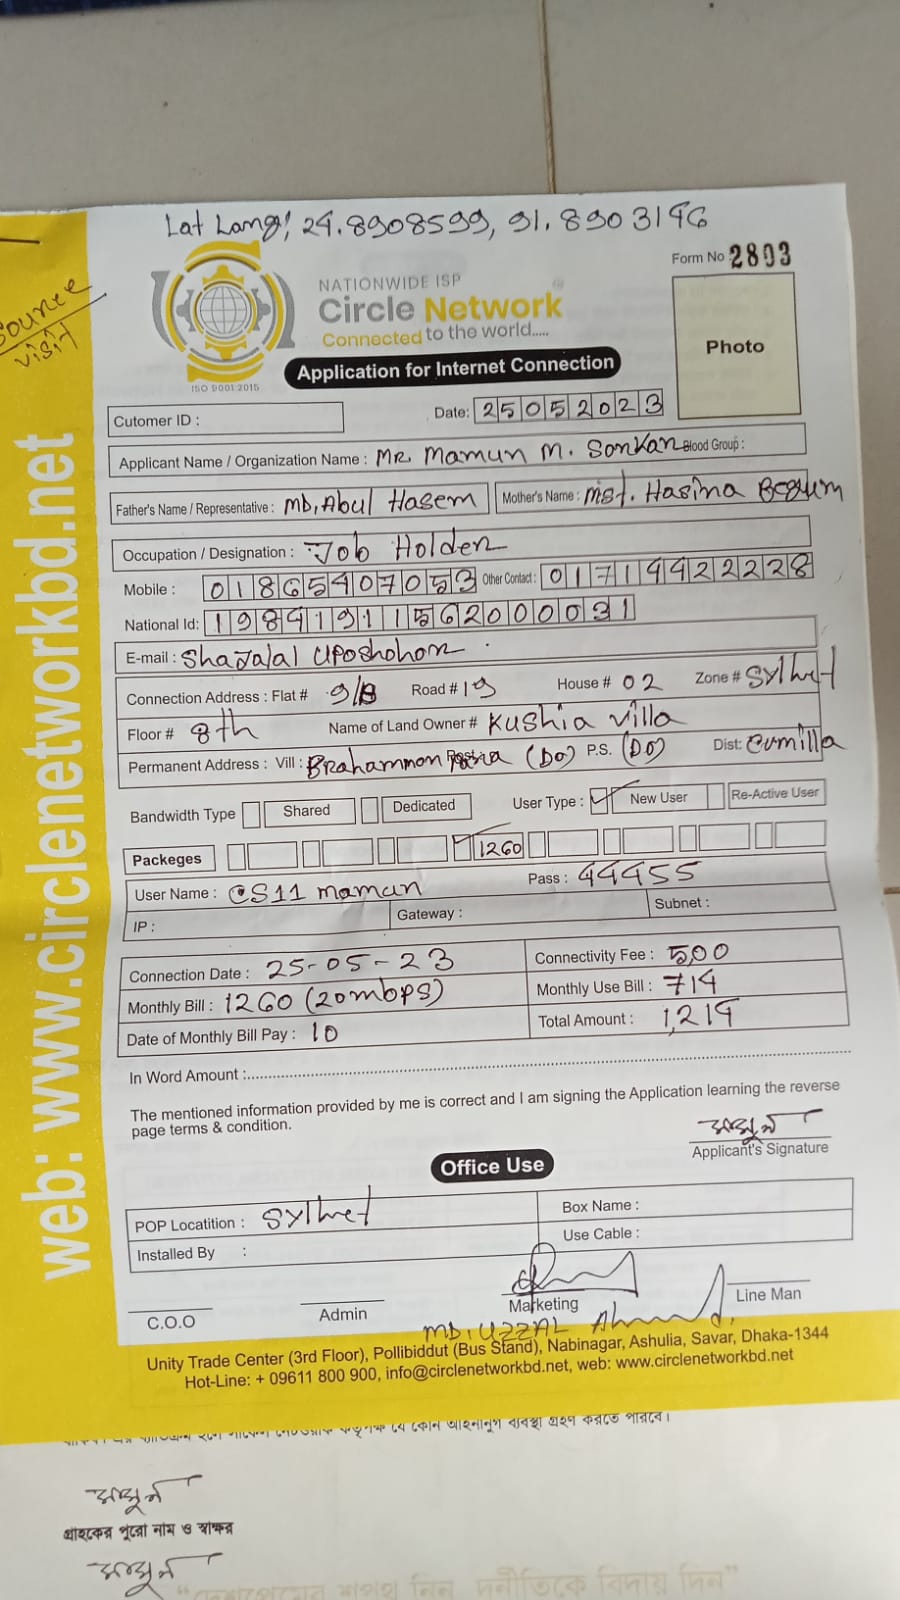 Lat Lang; 24.8908599, 91.8903146
Form No 2803
Source
visit
NATIONWIDE ISP
Circle Network
Connected to the world.....
ISO 9001:2015
Photo
Application for Internet Connection
Cutomer ID :
Date: 25052023
Applicant Name / Organization Name : MR. Mamun M. Sorkar Blood Group :
Father's Name / Representative : MD. Abul Hasem
Mother's Name : Mst. Hasina Begum
Occupation / Designation : Job Holder
Mobile : 01865407053 Other Contact : 01714422228
National Id: 19841911562000031
E-mail : Shajalal Uposhohor
Connection Address : Flat # 9/B Road # 19 House # 02 Zone # Sylhet
Floor # 8th Name of Land Owner # Kushia Villa
Permanent Address : Vill : (DO) P.S. (DO) Dist: Cumilla
Bandwidth Type Shared Dedicated User Type : New User Re-Active User
Packeges 1260
User Name : CS11 mamun Pass : 44455
IP : Gateway : Subnet :
Connection Date : 25-05-23 Connectivity Fee : 500
Monthly Bill : 1260 (20mbps) Monthly Use Bill : 714
Date of Monthly Bill Pay : 10 Total Amount : 1,214
In Word Amount :
The mentioned information provided by me is correct and I am signing the Application learning the reverse
page terms & condition.
মামুন
Applicant's Signature
Office Use
POP Locatition : Sylhet Box Name :
Installed By : Use Cable :
C.O.O Admin Marketing Line Man
MD. UZZAL Ahmed
Unity Trade Center (3rd Floor), Pollibiddut (Bus Stand), Nabinagar, Ashulia, Savar, Dhaka-1344
Hot-Line: + 09611 800 900, info@circlenetworkbd.net, web: www.circlenetworkbd.net
web: www.circlenetworkbd.net
যে কোন আইনানুগ ব্যবস্থা গ্রহণ করতে পারবে।
মামুন
গ্রাহকের পুরো নাম ও স্বাক্ষর
মামুন
"দেশপ্রেমের শপথ নিন, দুর্নীতিকে বিদায় দিন"